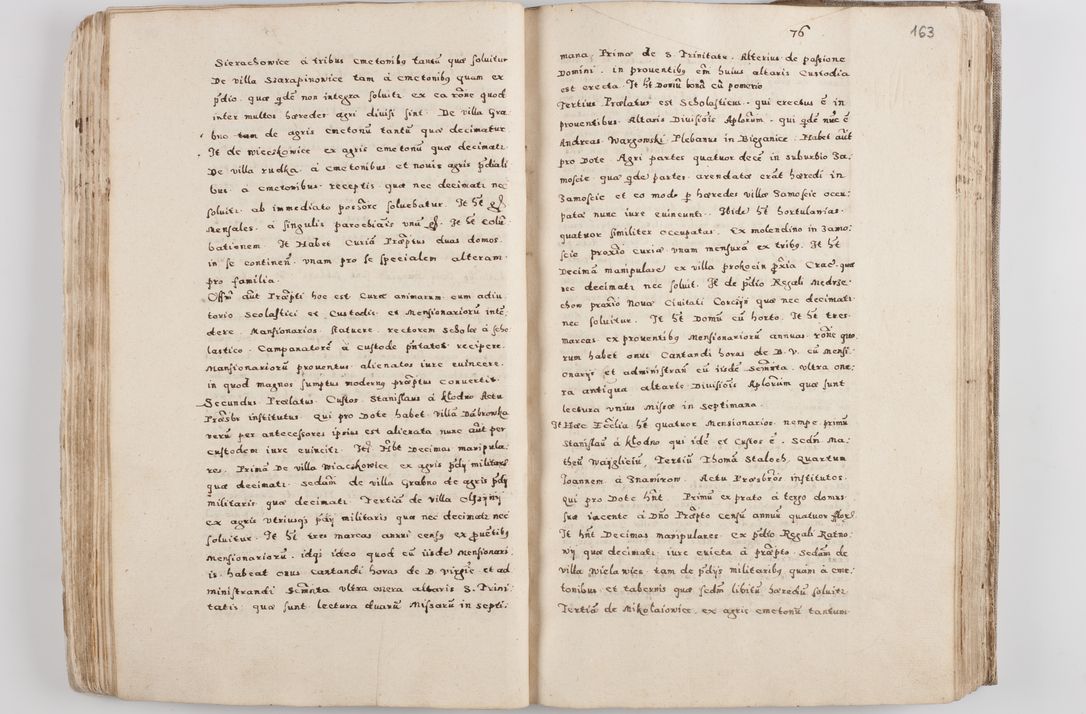 Sierachowice á tribus cmetonibꝫ tantũ quæ soluitur
De villa Szarapinowice tam á cmetonibꝫ quam ex
p̃dio quæ qde non integra soluitꝛ ex ea rõne quod
inter multos hæredes agri diuisi sint. De villa Gra
bno tam de agris cmetonũ tantũ quæ decimatur
It de wieczkowice ex agris cmetonũ quæ decimatꝛ
De villa rudka á cmetonibus et nouis agris p̃diali
bus á cmetonibus receptis quæ nec decimatꝛ nec
soluitꝛ ab immediato possore soluebatur. It ht̃
Mensales á singulis parochiais vnũ It ht̃ Colũ
bationem. It Habet Curiã Præptus duas domos
in se continen̄ vnam pro se specialem alteram
pro familia.
Offm̃ aũt Præpti hoc est Curæ animarum cum adiu
torio Scolastici et Custodis et Mensionariorũ inte
dere. Mansionarios statuere rectorem Scholæ á scho
lastico Campanatorẽ á custode p̃ntatos recipere
Mansionariorũ prouentus alienatos iure euincere
in quod magnos sumptus modernꝫ præptus Conuertit
Secundus Prælatus Custos Stanislaus á Kłodno Actu
Præsbr institutus qui pro Dote habet villã Dabrowka
verũ per antecessores ipsius est alienata nunc aũt per
custodem iure euincitꝛ. It Hbt Decimas manipula
res. Primã De villa Wiaczkowice ex agris p̃dij militaris
quæ decimatꝛ. Sedam de villa Grabno de agris p̃dij
militaris quæ decimatꝛ Tertiã de villa Olszyny
ex agris vtriusqꝫ p̃dij militaris quæ nec decimatꝛ nec
soluitur. It ht̃ tres marcas annui censꝫ ex p̃uetibꝫ
Mensionariorũ idqꝫ ideo quod cũ iisde Mensionari
is habeat onus cantandi horas de B. virgie et ad
ministrandi Semnta vltra onera altaris S. Trini
tatis quæ sunt lectura duarũ Missarũ in septi
76 163
mana Primæ de S. Trinitate. Alterius de passione
Domini in prouentibꝫ em huius altaris Custodia
est erecta. It ht̃ Domũ bonã cũ pomerio
Tertius Prælatus est Scholasticus qui erectus ẽ in
prouentibus Altaris Diuisiois Aplorum qui qde nũc ẽ
Andreas Wargowski Plebanus in Biezanice. Habet aũt
pro Dote. Agri partes quatuor decẽ in suburbio Za
moscie quæ qde partes arendatæ erãt hæredi in
Zamoscie et eo modo p hæredes villæ Zamoscie occu
patæ nunc iure euincuntꝛ. Ibide ht̃ hortulanias
quatuor similiter occupatas. Ex molendino in Zamo
scie proxio curiæ vnam mensurã ex tribꝫ. It ht̃
Decimã manipulare ex villa prokocin p̃xia Crac quæ
nec decimatꝛ nec soluit. It de p̃dio Regali Medrze
chow proxio Nouæ Ciuitati Corcijs quæ nec decimatꝛ
nec soluitur. It ht̃ Domũ cũ horto. It ht̃ tres
marcas ex prouentibꝫ Mensionariorũ annuas rõne quo
rum habet onus Cantandi horas de B. V. cũ Mensi
onarijs et administran cũ iisde Semnta vltra one
ra antiqua altaris Diuisiois Aplorum quæ sunt
lectura vnius Missæ in septimana.
It Hæc Ecclia ht̃ quatuor Mensionarios nempe primũ
Stanislaũ á Kłodno qui ide et Custos ẽ. Sedm Ma
theũ Wayglicium, Tertiũ Thomã Staloch, Quartum
Joannem á Znamirow. Actu Præsbros institutos
Qui pro Dote hnt. Primũ ex prato á tergo domus
suæ iacente á Dño Præpto censũ annuũ quatuor flor.
It hnt Decimas manipulares ex p̃dio Regali Ratno
wy quæ decimatꝛ iure euicta á præpto Sedam de
villa Wielawies tam de p̃dijs militaribꝫ quam á cme
tonibus et tabernis quæ sedm libitũ hæredũ soluitꝛ
Tertiã de Mikołaiowice ex agris cmetonũ tantum